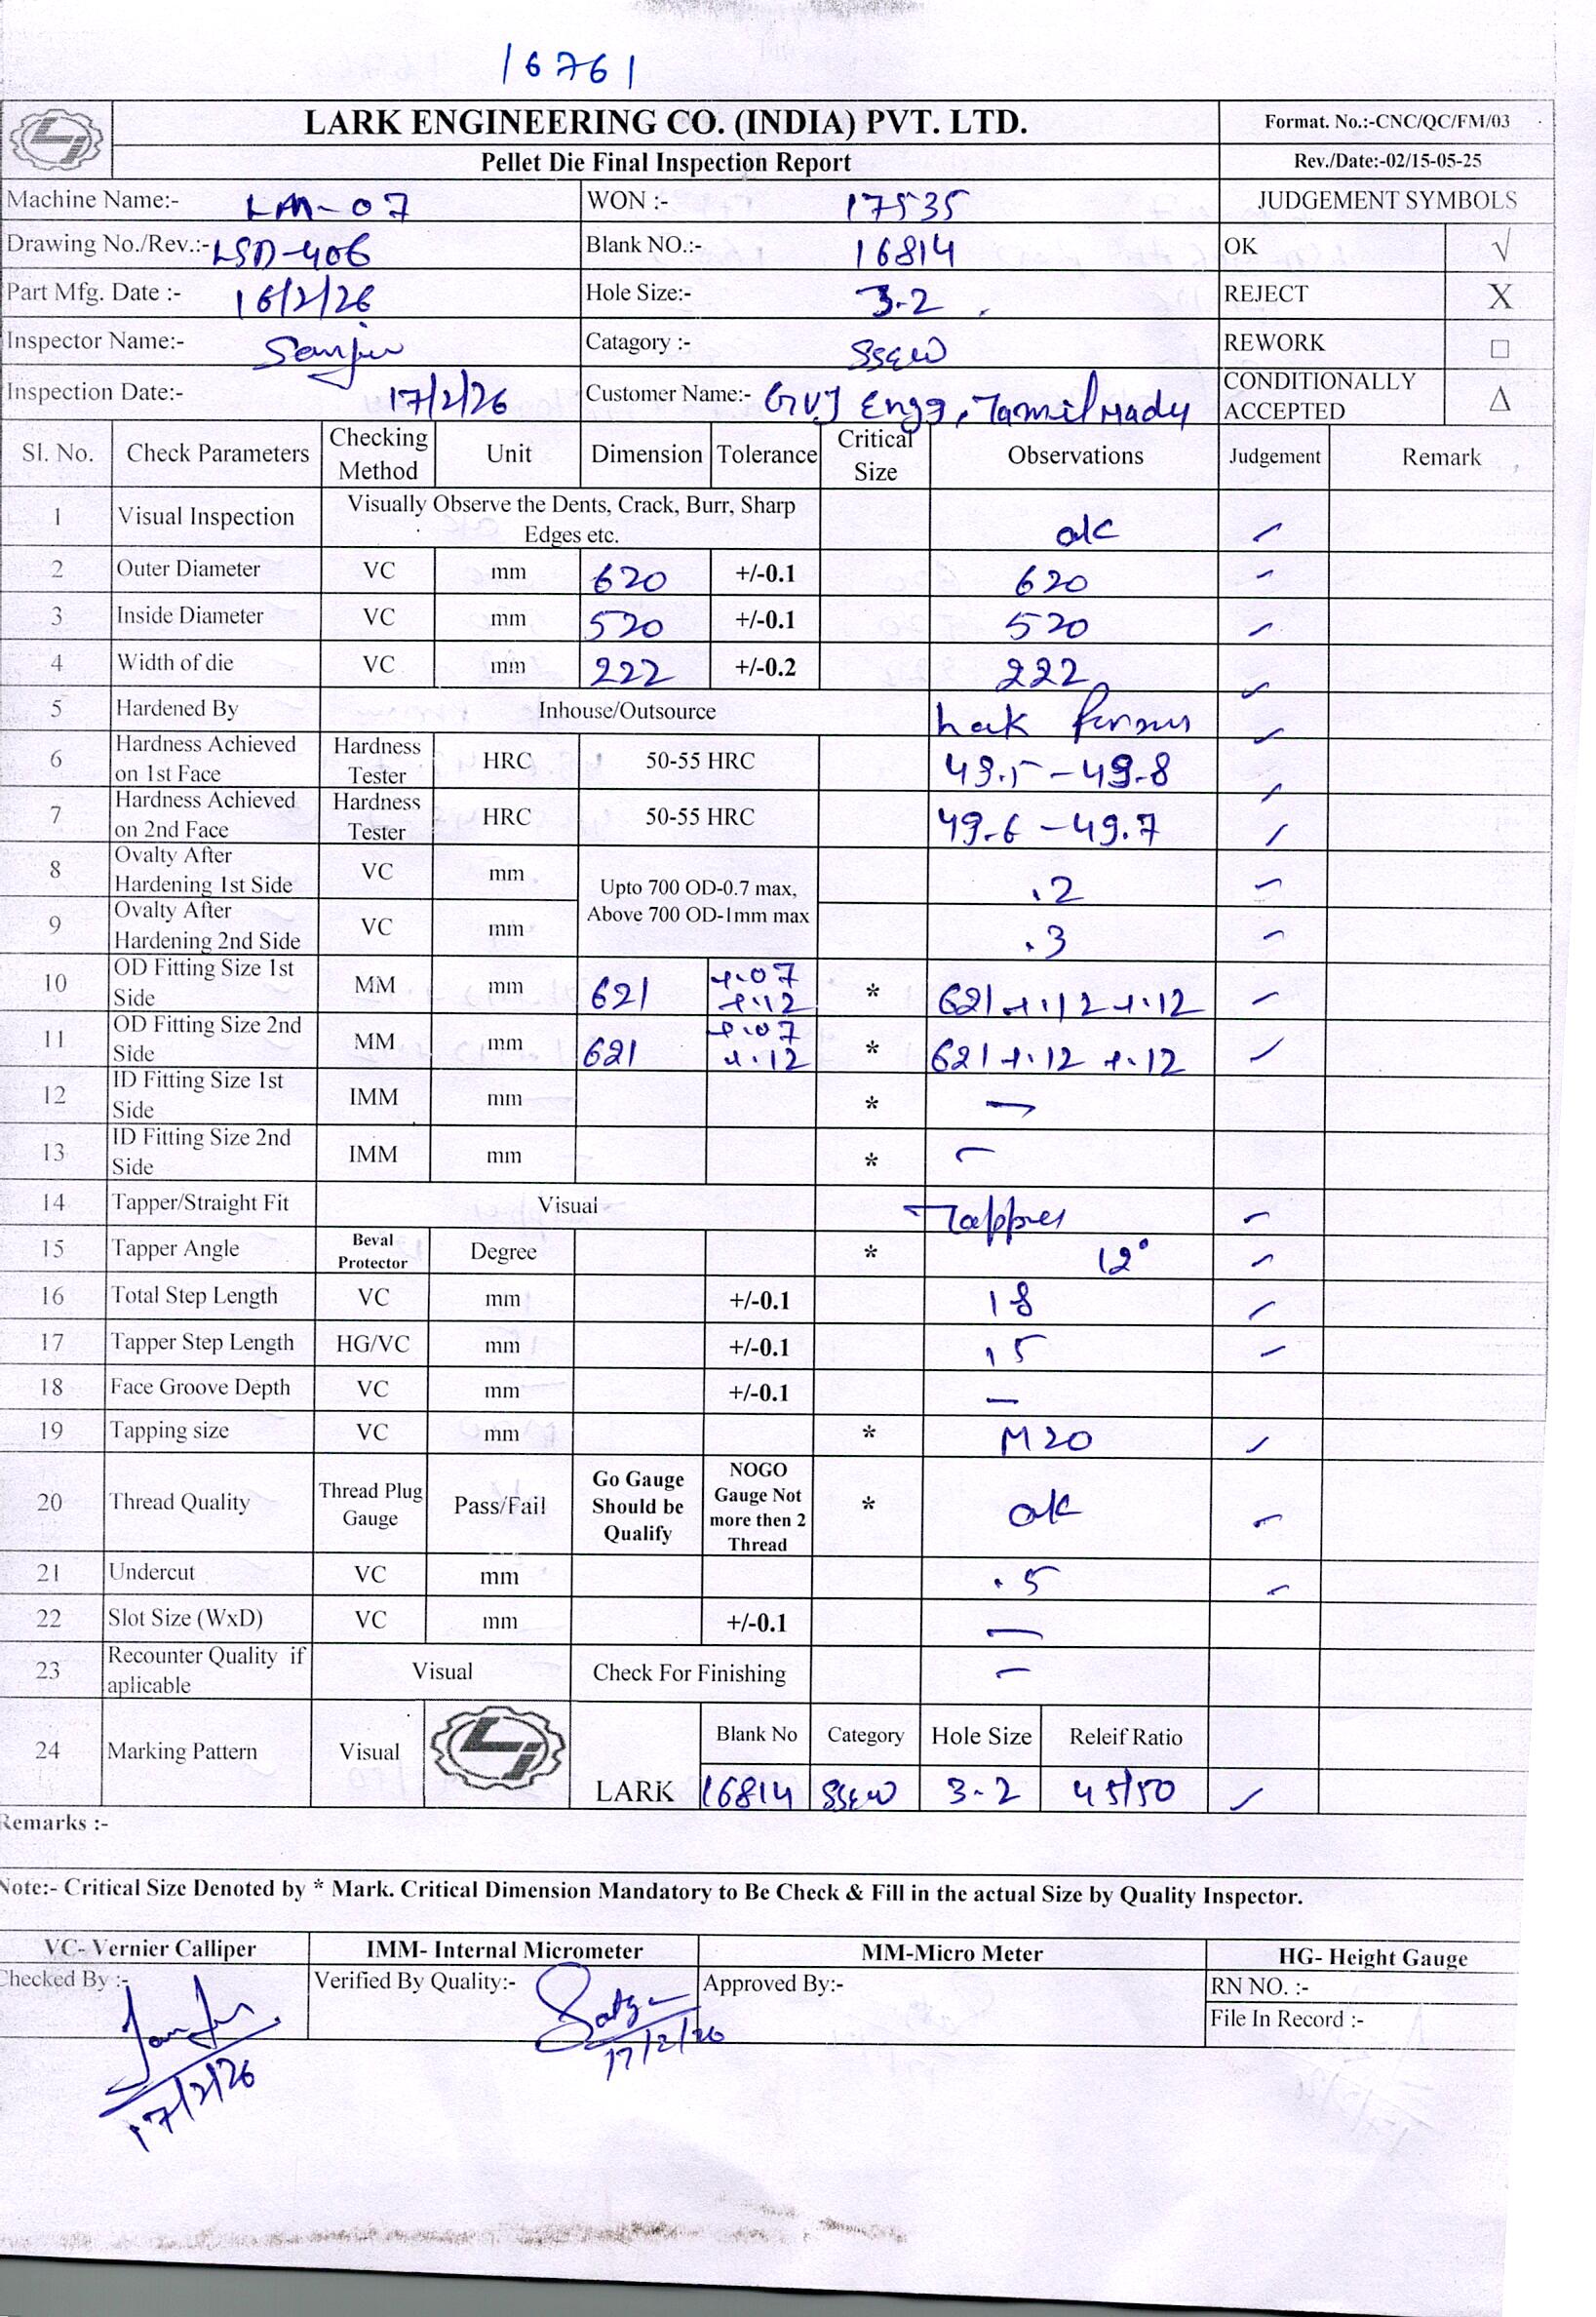 16761
LARK ENGINEERING CO. (INDIA) PVT. LTD.
Format. No.:-CNC/QC/FM/03
Pellet Die Final Inspection Report
Rev./Date:-02/15-05-25
Machine Name:- LM-07 WON :- 17535 JUDGEMENT SYMBOLS
Drawing No./Rev.:- LSD-406 Blank NO.:- 16814 OK √
Part Mfg. Date :- 16/2/26 Hole Size:- 3.2 REJECT X
Inspector Name:- Sanjiv Catagory :- SSEW REWORK □
Inspection Date:- 17/2/26 Customer Name:- GVJ Engg, Tamil Nadu CONDITIONALLY ACCEPTED Δ
Sl. No. Check Parameters Checking Method Unit Dimension Tolerance Critical Size Observations Judgement Remark
1 Visual Inspection Visually Observe the Dents, Crack, Burr, Sharp Edges etc. ok
2 Outer Diameter VC mm 620 +/-0.1 620
3 Inside Diameter VC mm 520 +/-0.1 520
4 Width of die VC mm 222 +/-0.2 222
5 Hardened By Inhouse/Outsource
6 Hardness Achieved on 1st Face Hardness Tester HRC 50-55 HRC 49.5-49.8
7 Hardness Achieved on 2nd Face Hardness Tester HRC 50-55 HRC 49.6-49.7
8 Ovalty After Hardening 1st Side VC mm Upto 700 OD-0.7 max, Above 700 OD-1mm max .2
9 Ovalty After Hardening 2nd Side VC mm .3
10 OD Fitting Size 1st Side MM mm 621 +.07 +.12 * 621 +.12 +.12
11 OD Fitting Size 2nd Side MM mm 621 +.07 +.12 * 621 +.12 +.12
12 ID Fitting Size 1st Side IMM mm * —
13 ID Fitting Size 2nd Side IMM mm * —
14 Tapper/Straight Fit Visual Tapper
15 Tapper Angle Beval Protector Degree * 12°
16 Total Step Length VC mm +/-0.1 18
17 Tapper Step Length HG/VC mm +/-0.1 15
18 Face Groove Depth VC mm +/-0.1 —
19 Tapping size VC mm * M20
20 Thread Quality Thread Plug Gauge Pass/Fail Go Gauge Should be Qualify NOGO Gauge Not more then 2 Thread * ok
21 Undercut VC mm .5
22 Slot Size (WxD) VC mm +/-0.1 —
23 Recounter Quality if aplicable Visual Check For Finishing —
24 Marking Pattern Visual LARK Blank No Category Hole Size Releif Ratio
16814 SSEW 3.2 45/50
Remarks :-
Note:- Critical Size Denoted by * Mark. Critical Dimension Mandatory to Be Check & Fill in the actual Size by Quality Inspector.
VC- Vernier Calliper IMM- Internal Micrometer MM-Micro Meter HG- Height Gauge
Checked By :- Verified By Quality:- Approved By:- RN NO. :-
File In Record :-
17/2/26 17/2/26